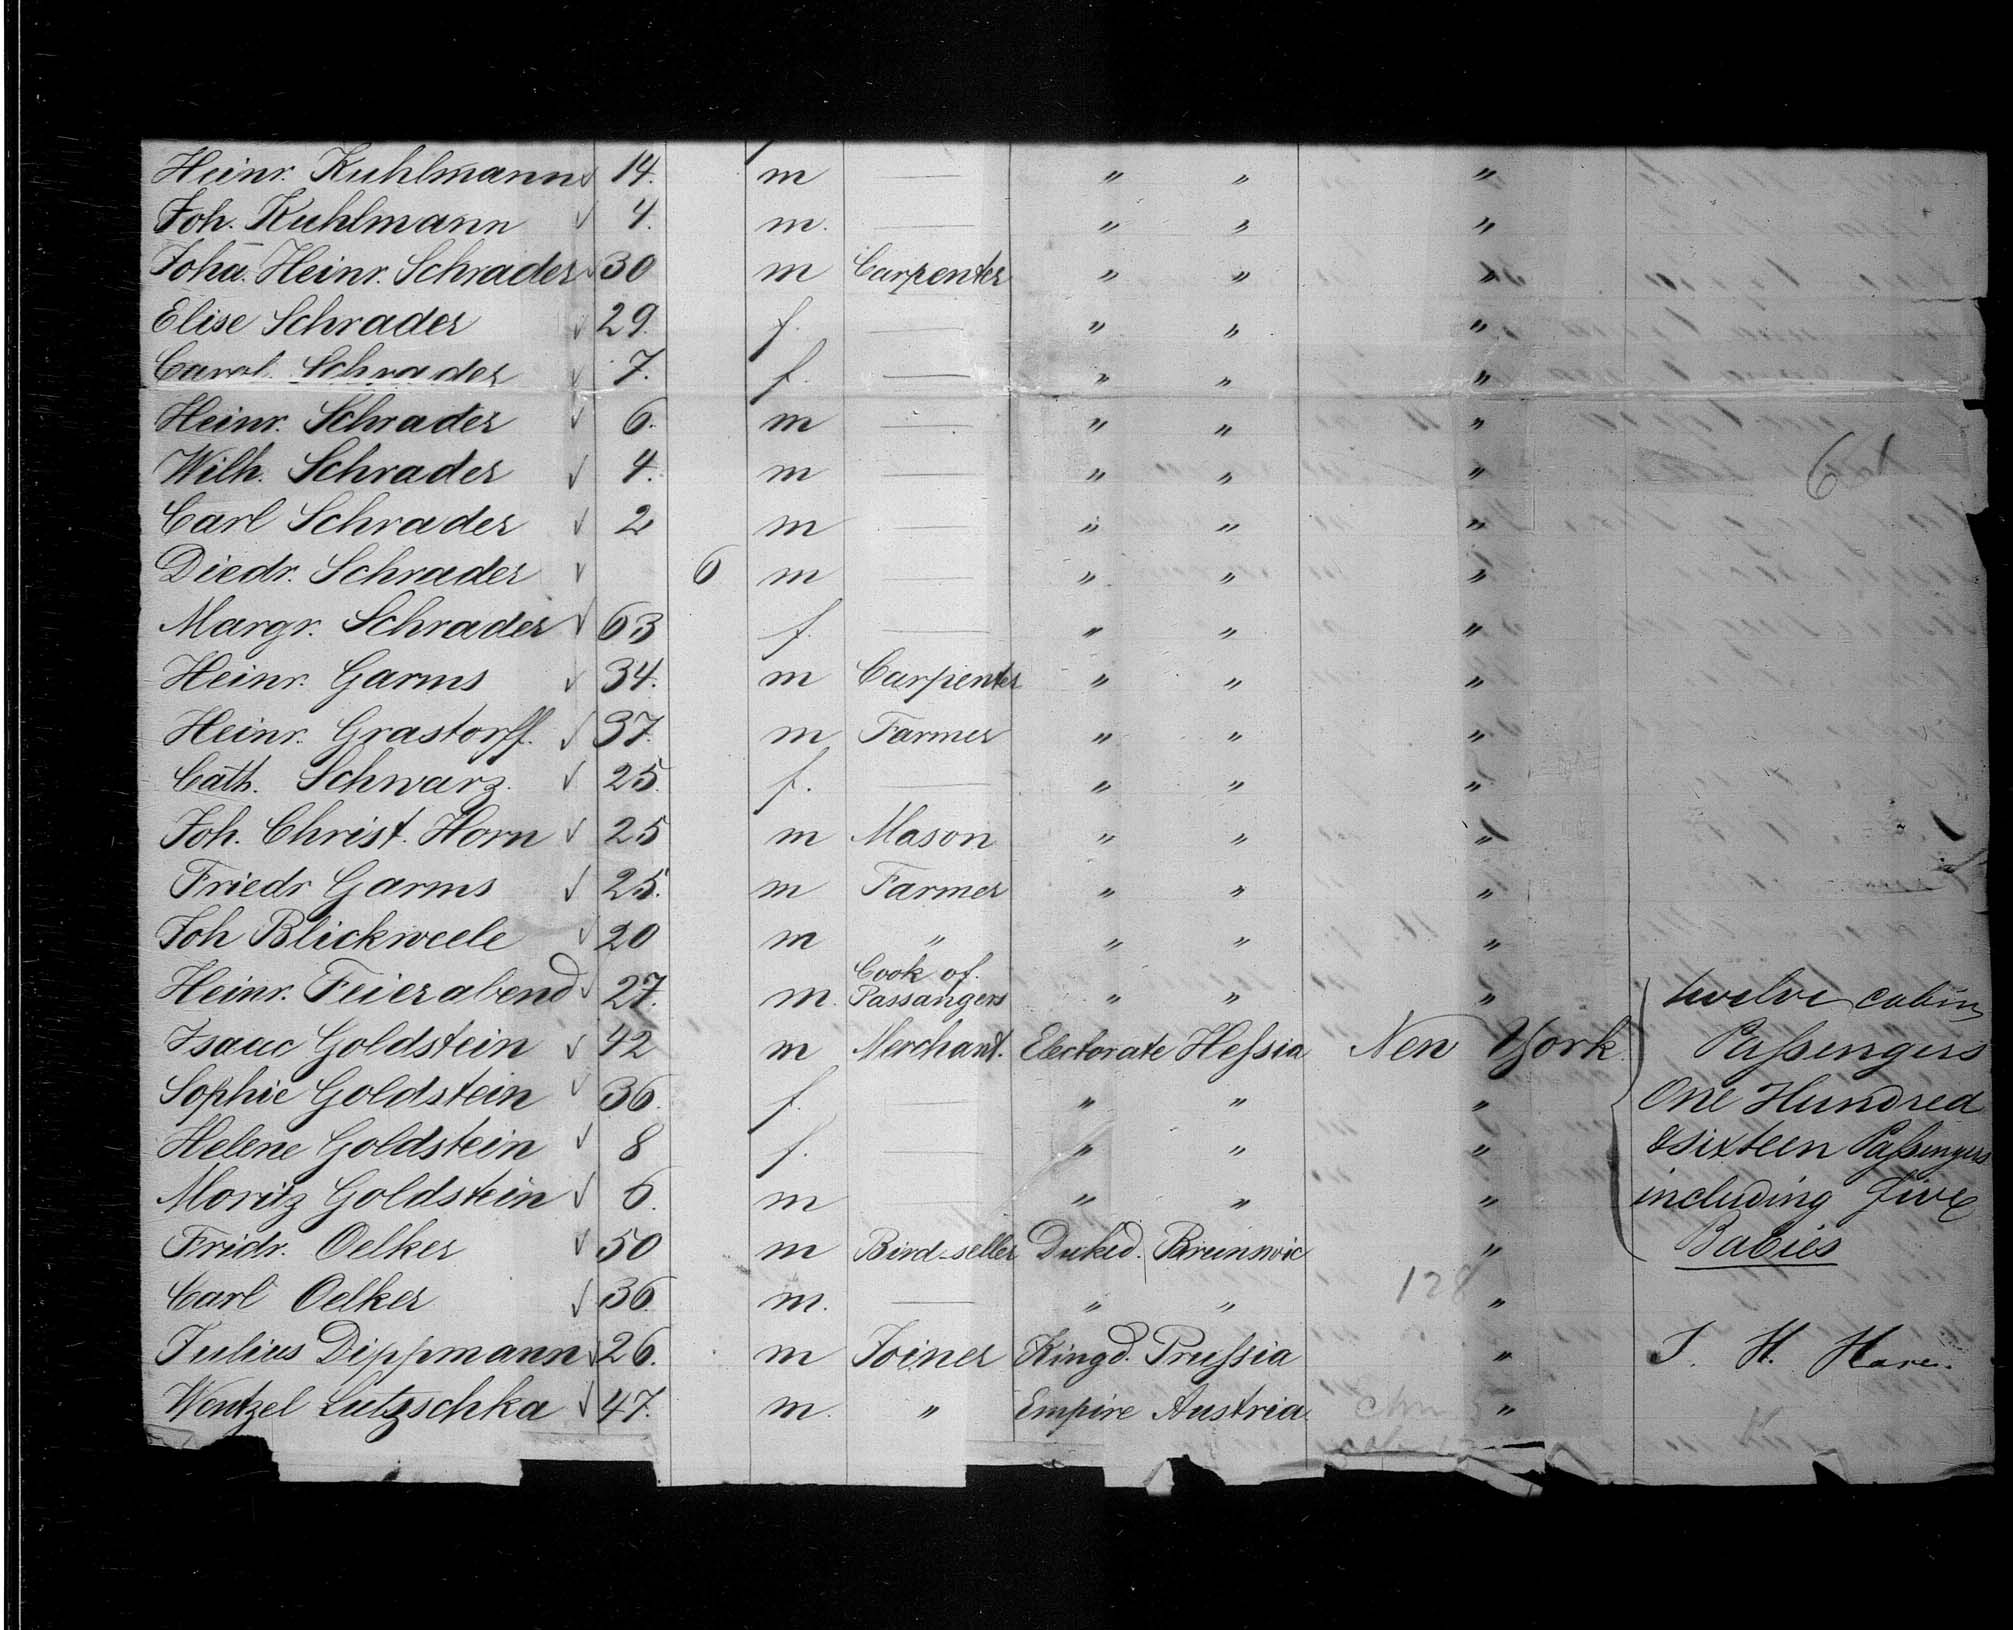 Heinr. Kuhlmann √ 14. m — " " "
Joh. Kuhlmann √ 4. m. — " " "
Joha. Heinr. Schrader √ 30 m Carpenter " " "
Elise Schrader √ 29. f. — " " "
Carol. Schrader √ 7. f. — " " "
Heinr. Schrader √ 6. m — " " "
Wilh. Schrader √ 4. m — " " "
Carl Schrader √ 2 m — " " "
Diedr. Schrader √ 6 m — " " "
Margr. Schrader √ 63 f. — " " "
Heinr. Garms √ 34. m Carpenter " " "
Heinr. Grastorff. √ 37. m Farmer " " "
Cath. Schwarz. √ 25. f. — " " "
Joh. Christ. Horn √ 25 m Mason " " "
Friedr Garms √ 25. m Farmer " " "
Joh Blickweele √ 20 m " " " "
Heinr. Feierabend √ 27. m. Cook of. Passangers " " "
Isaac Goldstein √ 42 m Merchant. Electorate Hessia New York.
Sophie Goldstein √ 36. f. — " " "
Helene Goldstein √ 8 f. — " " "
Moritz Goldstein √ 6. m — " " "
Fridr. Oelker √ 50 m Bird-seller Duked. Brunswic "
Carl Oelker √ 36 m. — " " 128 "
Julius Dippmann √ 26. m Joiner Kingd. Prussia "
Wentzel Lutzschka √ 47. m. " Empire Austria. "
twelve cabin
Passengers
One Hundred
& sixteen Passengers
including five
Babies
J. H.